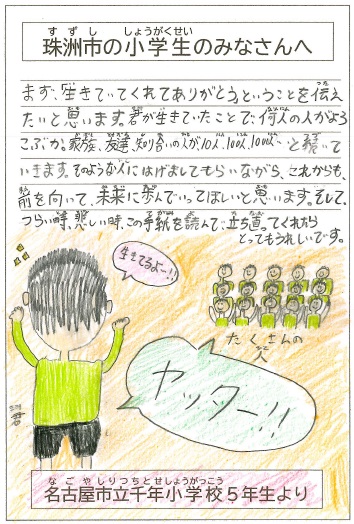 すずし しょうがくせい
珠洲市の小学生のみなさんへ
まず、生きていてくれてありがとう。ということを伝え
たいと思います。君が生きていたことで、何人の人がよろ
こぶか。家族、友達、知り合いの人が10人、100人、1000人…と続いて
いきます。そのような人にはげましてもらいながら、これからも、
前を向いて、未来に歩んでいってほしいと思います。そして、
つらい時、悲しい時、この手紙を読んで、立ち直ってくれたら
とってもうれしいです。
生きてるよー!!
たくさんの
人
ヤッター!!
君
なごやしりつちとせしょうがっこう
名古屋市立千年小学校5年生より